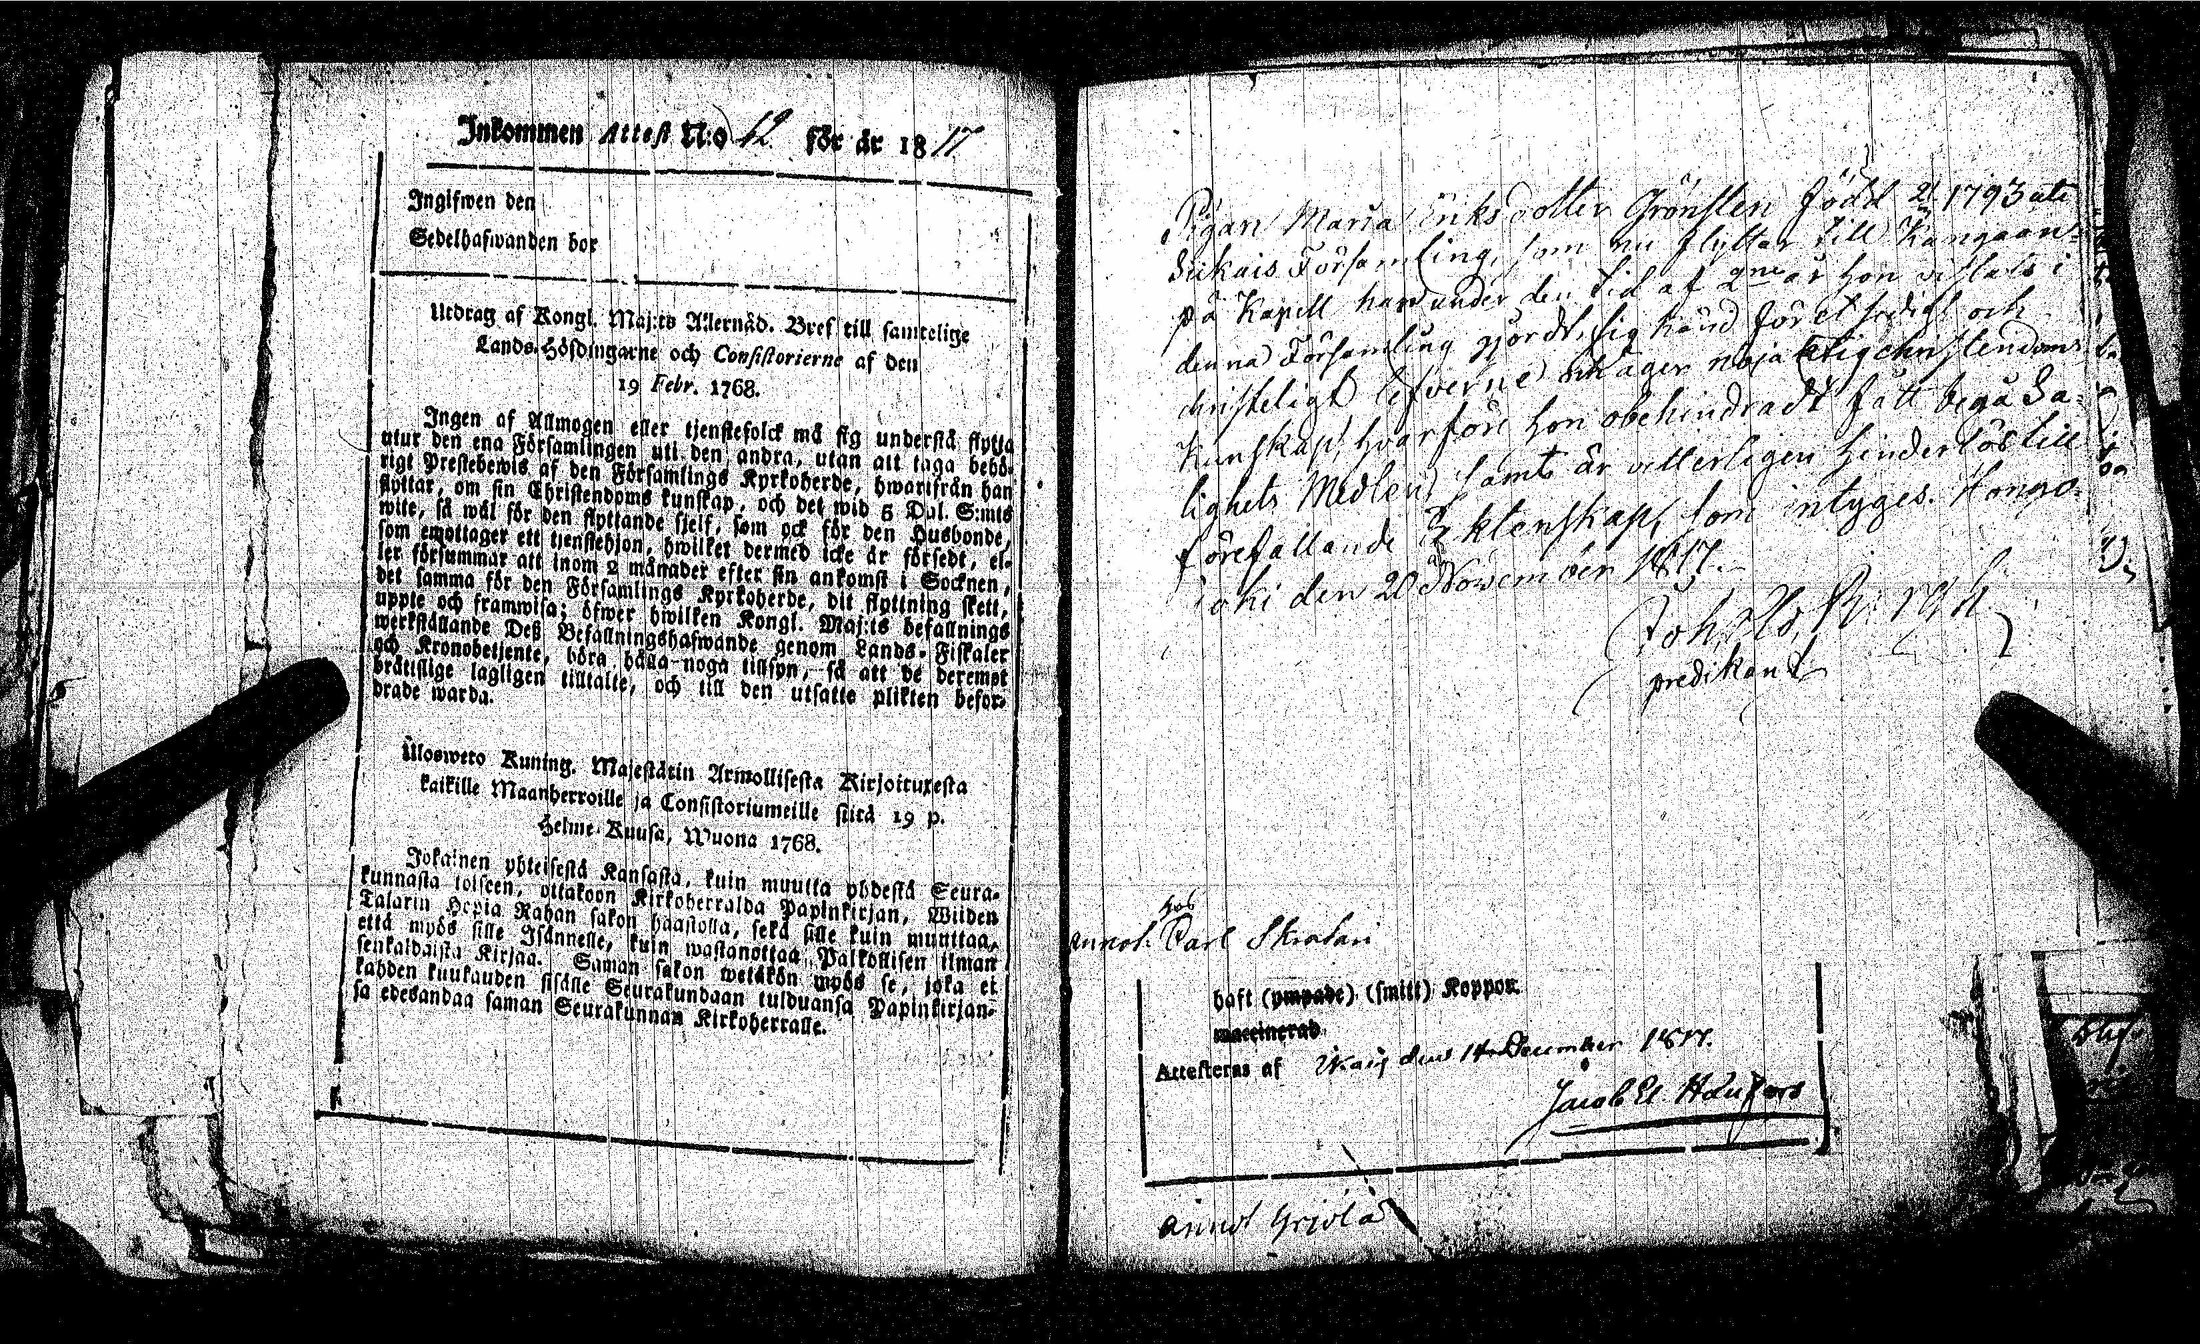 Inkommen Attest N:o 12 för år 1817
Ingifwen den
Sedelhafwanden bor
Utdrag af Kongl. Maj:ts Allernåd. Bref till samtelige
Lands-Höfdingarne och Consistorierne af den
19 Febr. 1768.
Ingen af Allmogen eller tjenstefolck må sig understå flytta
utur den ena Församlingen uti den andra, utan att taga behö-
rigt Prestebewis af den Församlings Kyrkoherde, hwarifrån han
flyttar, om sin Christendoms kunskap, och det wid 5 Dal. S:mts
wite, så wäl för den flyttande sjelf, som ock för den Husbonde,
som emottager ett tjenstehjon, hwilket dermed icke är försedt, el-
ler försummar att inom 2 månader efter sin ankomst i Socknen,
det samma för den Församlings Kyrkoherde, dit flyttning skett,
uppte och framwisa; öfwer hwilken Kongl. Maj:ts befallnings
werkställande Deß Befallningshafwande genom Lands-Fiskaler
och Kronobetjente, böra hålla noga tillsyn, så att de deremot
brätislige lagligen tilltalte, och till den utsatte plikten befor-
drade warda.
Ulosweto Kuning. Majestätin Armollisesta Kirjoituxesta
kaikille Maanherroille ja Consistoriumeille siitä 19 p.
Helme-Kuusa, Wuona 1768.
Jokainen yhteisestä Kansasta, kuin muutta yhdestä Seura-
kunnasta toiseen, ottakoon Kirkoherralda Papinkirjan, Wiiden
Talarin Hopia Rahan sakon haastolla, sekä sille kuin muuttaa,
että myös sille Isännelle, kuin wastanottaa Palkollisen ilman
senkaldaista Kirjaa. Saman sakon wetäkön myös se, joka ei
kahden kuukauden sisälle Seurakundaan tulduansa Papinkirjan-
sa edesandaa saman Seurakunnan Kirkoherralle.
Pigan Maria Eriksdotter Grönsten född 1793 uti
Församling, som nu flyttar till Kangaan-
på Kapell har under den tid af 2ne år hon vistats i
denna Församling gjordt sig känd för et sedigt och
christeligt lefverne och äger christendoms
Kunskap, hvarföre hon obehindradt fått begå Sa-
lighets Medlen samt är vitterligen hinderlös till
förefallande Ektenskap, som intyges. Hongo-
joki den 20 November 1817.
predikant
hos
annot. Carl
haft (ympade) (smitt) Koppor.
waccinerad
Attesteras af den 14 December 1817.
annot